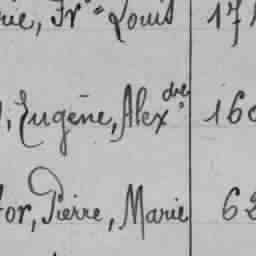 rie, Frs Louis 171
, Eugène, Alexdre 160
or, Pierre, Marie 62